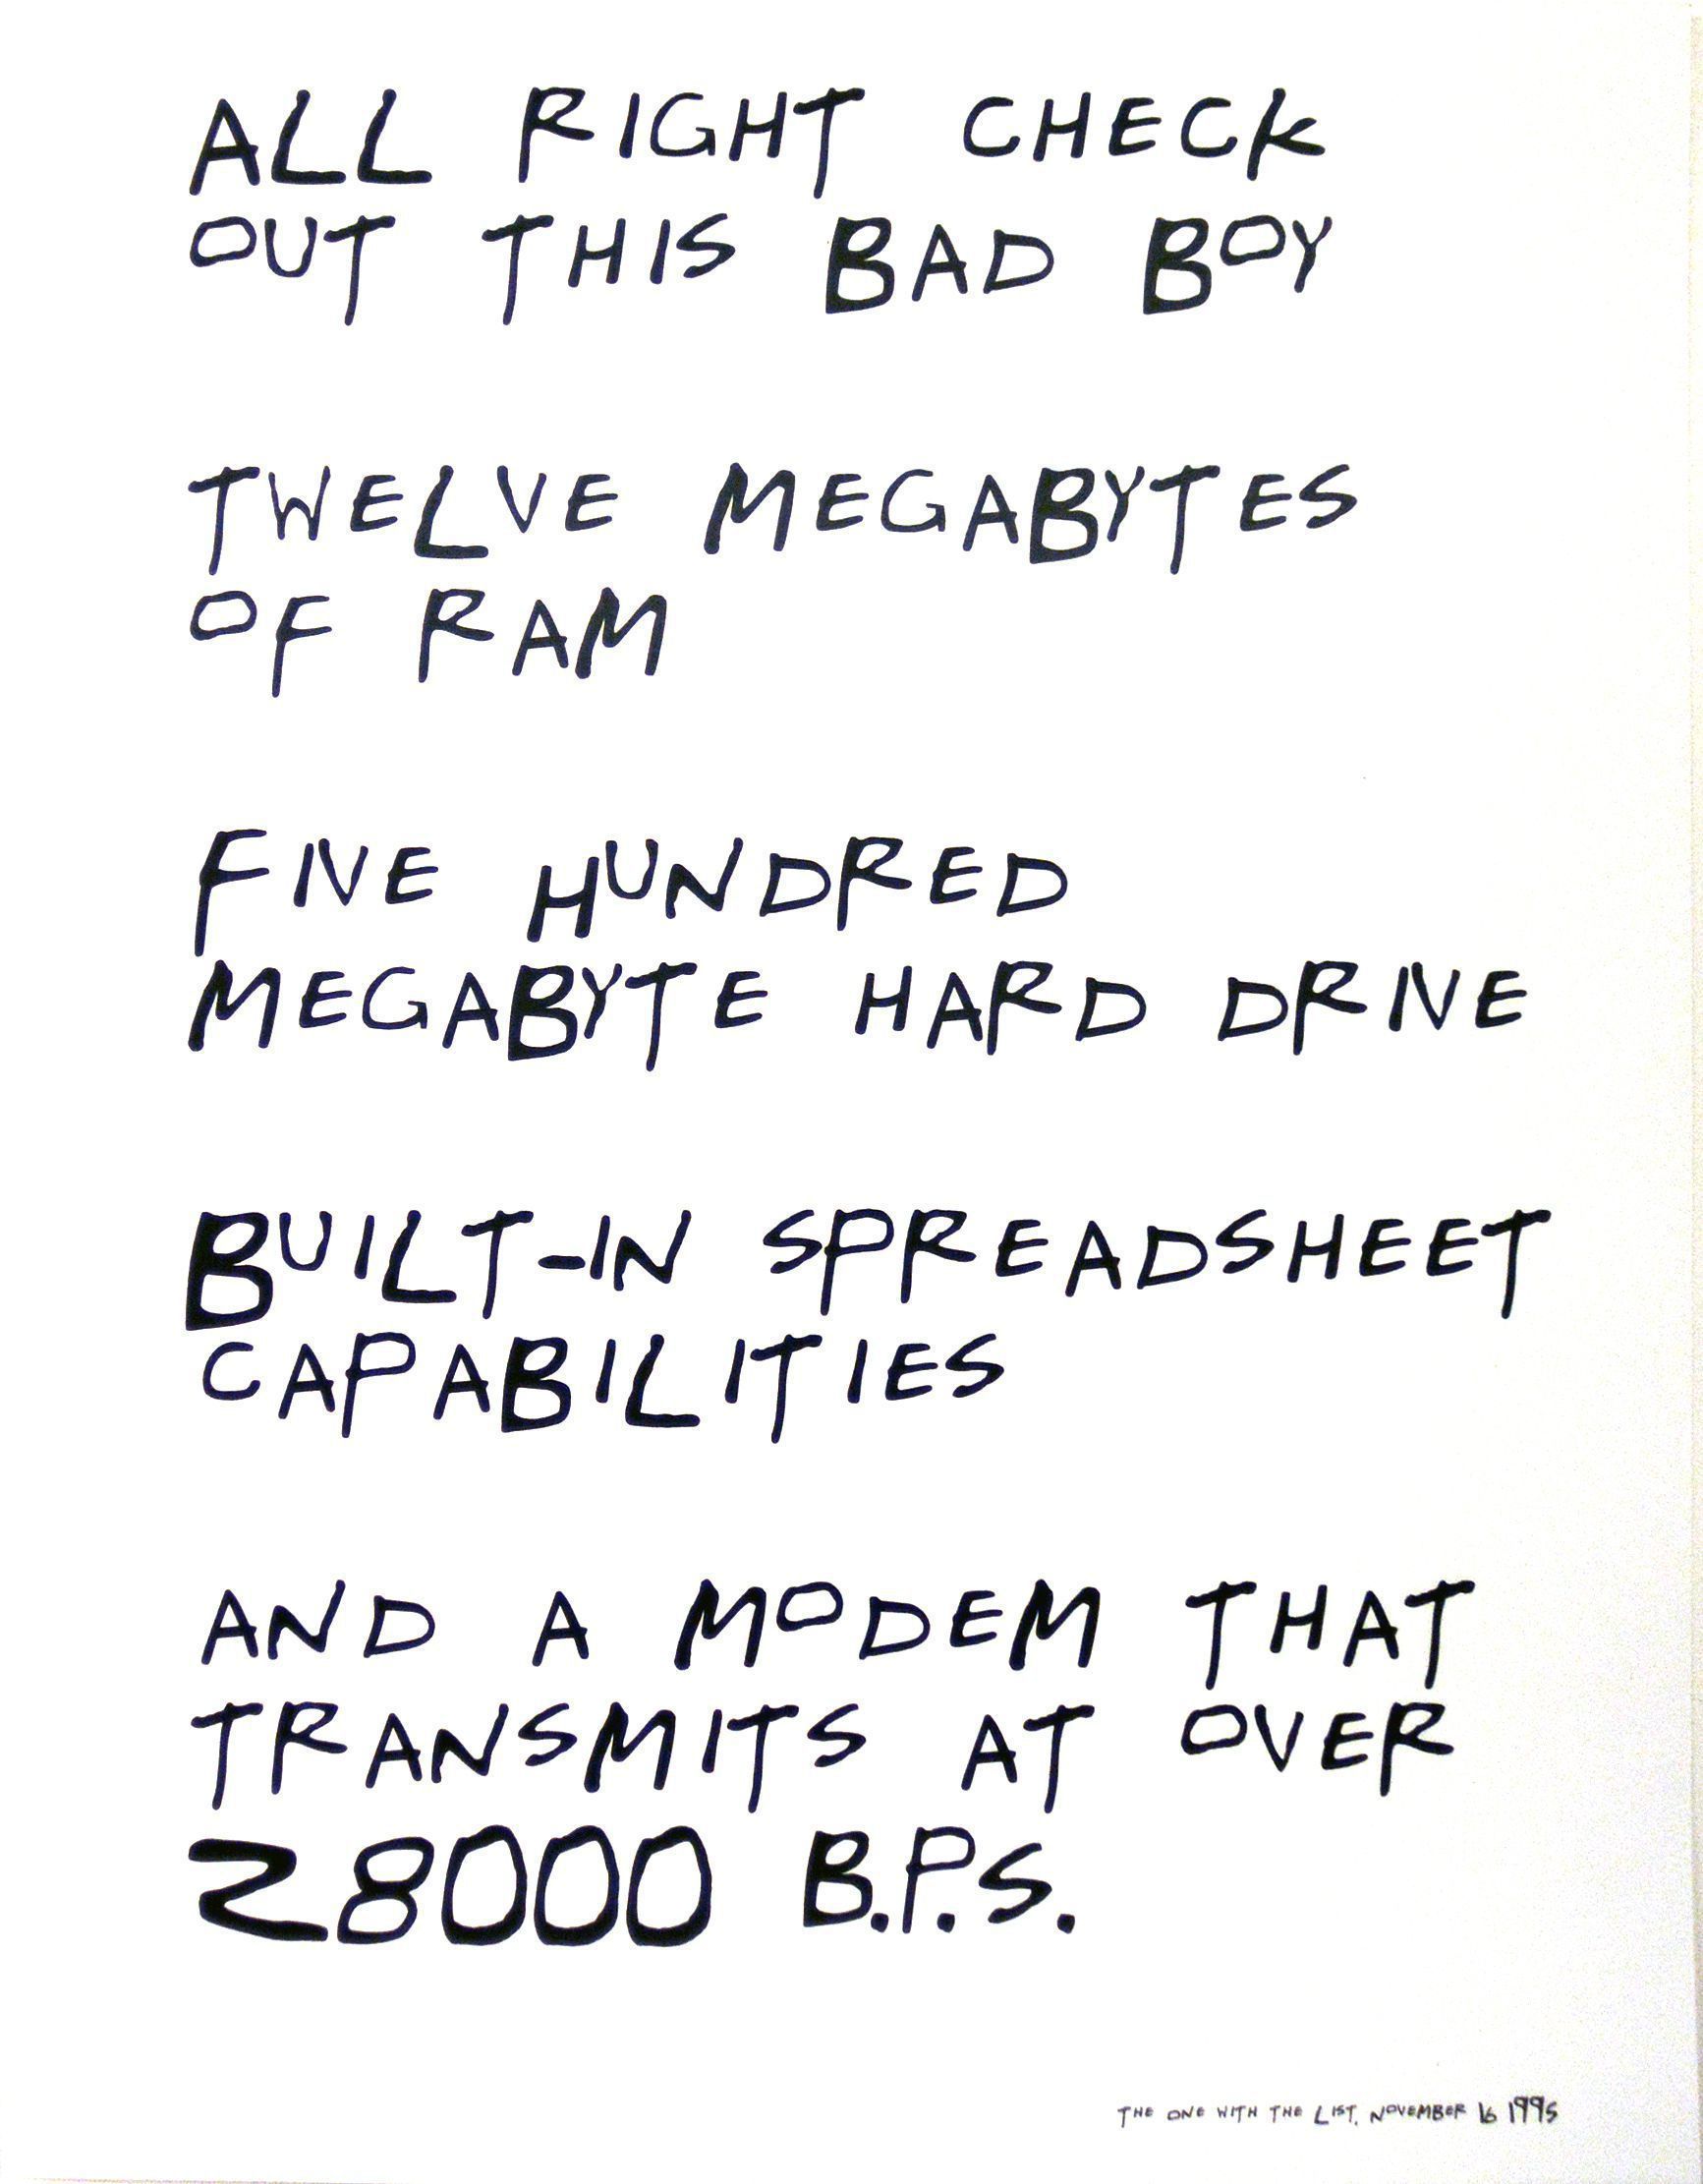 ALL RIGHT CHECK
OUT THIS BAD BOY
TWELVE MEGABYTES
OF RAM
FIVE HUNDRED
MEGABYTE HARD DRIVE
BUILT-IN SPREADSHEET
CAPABILITIES
AND A MODEM THAT
TRANSMITS AT OVER
28000 B.P.S.
THE ONE WITH THE LIST, NOVEMBER 16 1995